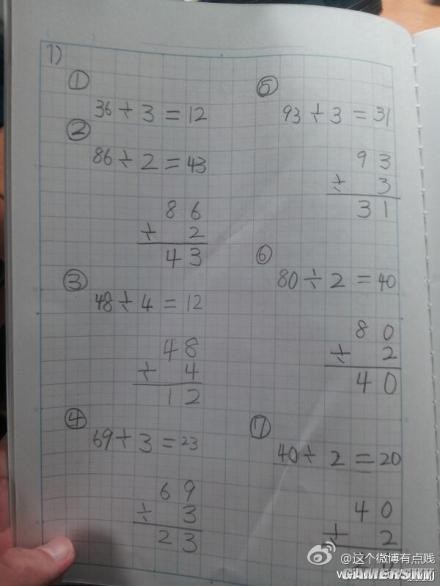 1)
①
36÷3=12
②
86÷2=43
86
÷ 2
43
③
48÷4=12
48
÷ 4
12
④
69÷3=23
69
÷ 3
23
⑤
93÷3=31
93
÷ 3
31
⑥
80÷2=40
80
÷ 2
40
⑦
40÷2=20
40
÷ 2
@这个微博有点贱
GAMERSKY